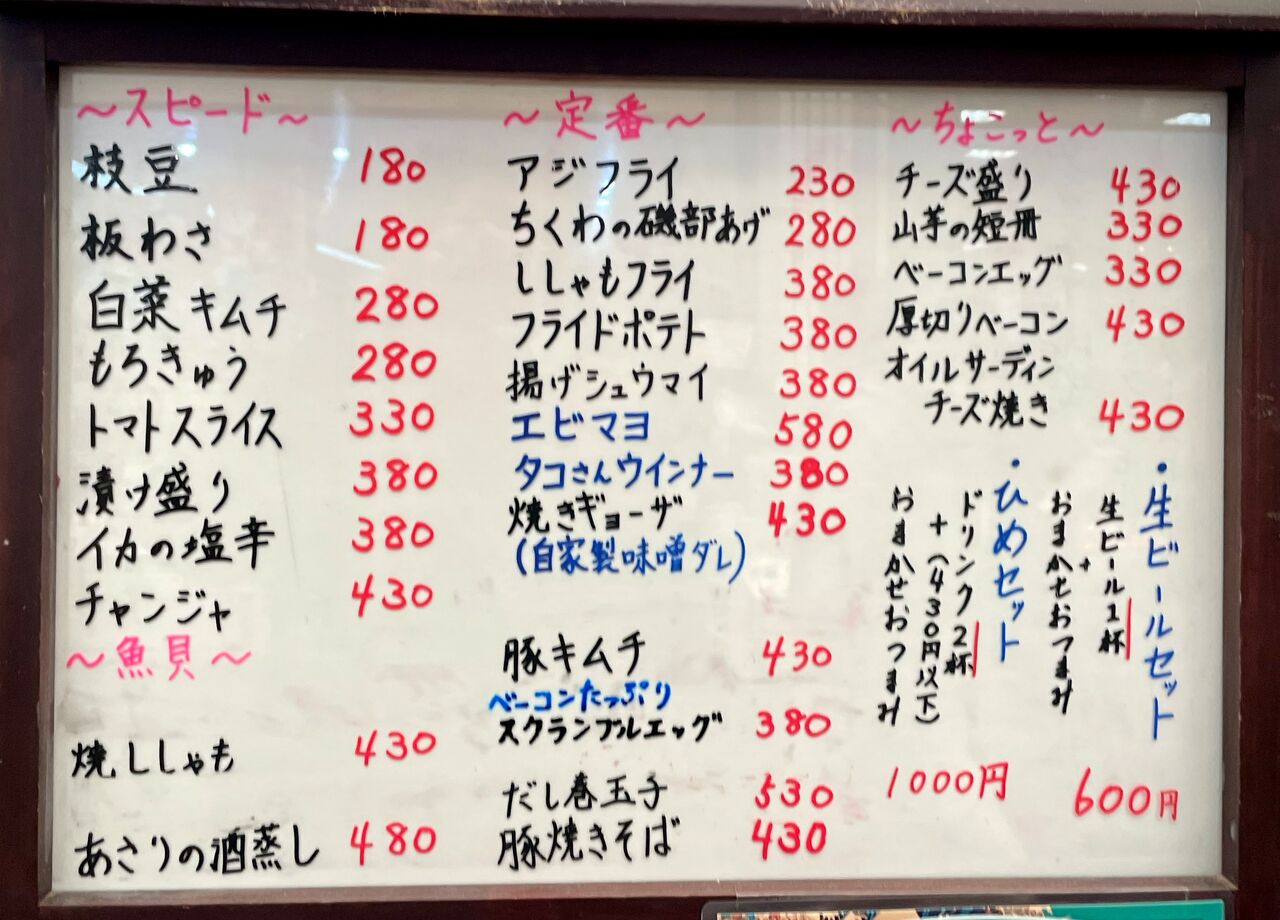 ～スピード～
枝豆 180
板わさ 180
白菜キムチ 280
もろきゅう 280
トマトスライス 330
漬け盛り 380
イカの塩辛 380
チャンジャ 430
～魚貝～
焼ししゃも 430
あさりの酒蒸し 480
～定番～
アジフライ 230
ちくわの磯部あげ 280
ししゃもフライ 380
フライドポテト 380
揚げシュウマイ 380
エビマヨ 580
タコさんウインナー 380
焼きギョーザ 430
(自家製味噌ダレ)
豚キムチ 430
ベーコンたっぷり
スクランブルエッグ 380
だし巻玉子 530
豚焼きそば 430
～ちょこっと～
チーズ盛り 430
山芋の短冊 330
ベーコンエッグ 330
厚切りベーコン 430
オイルサーディン
チーズ焼き 430
・生ビールセット
生ビール1杯
+
おまかせおつまみ
600円
・ひめセット
ドリンク2杯
+(430円以下)
おまかせおつまみ
1000円